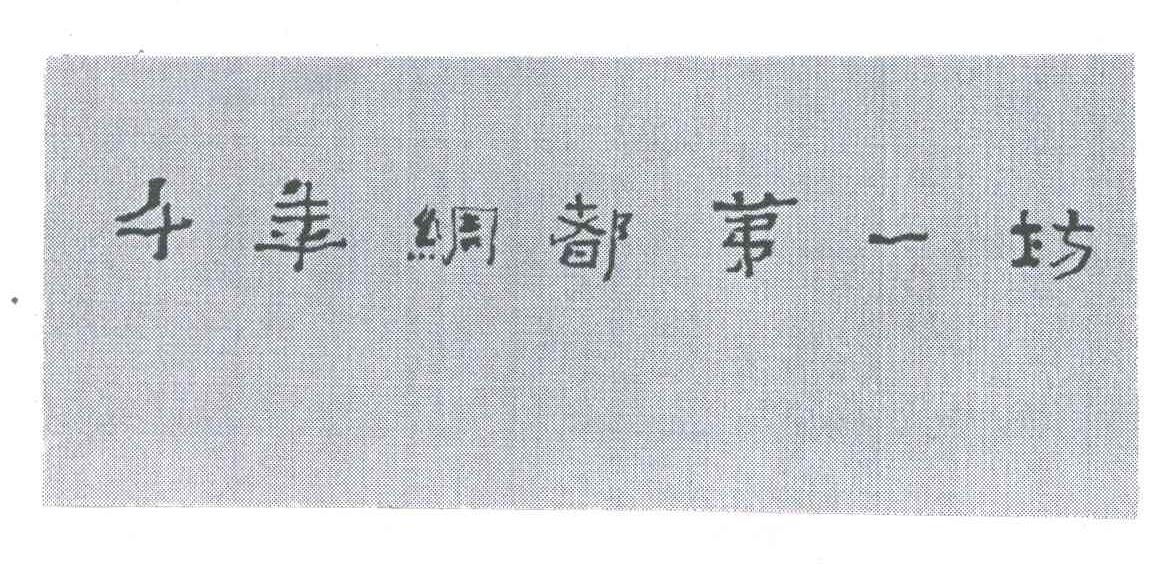 千年綢都第一坊